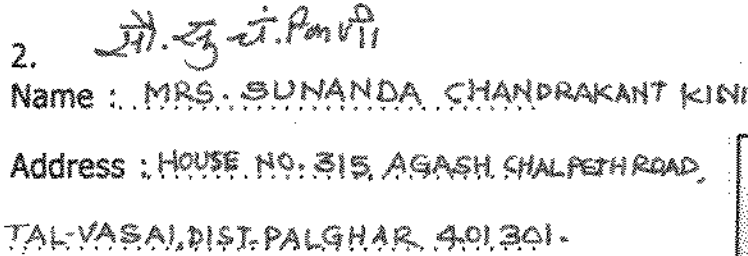 सौ. सु चं. किणी
2.
Name : MRS. SUNANDA CHANDRAKANT KINI
Address : HOUSE NO. 315, AGASH CHALPETH ROAD,
TAL-VASAI, DIST-PALGHAR 401301.